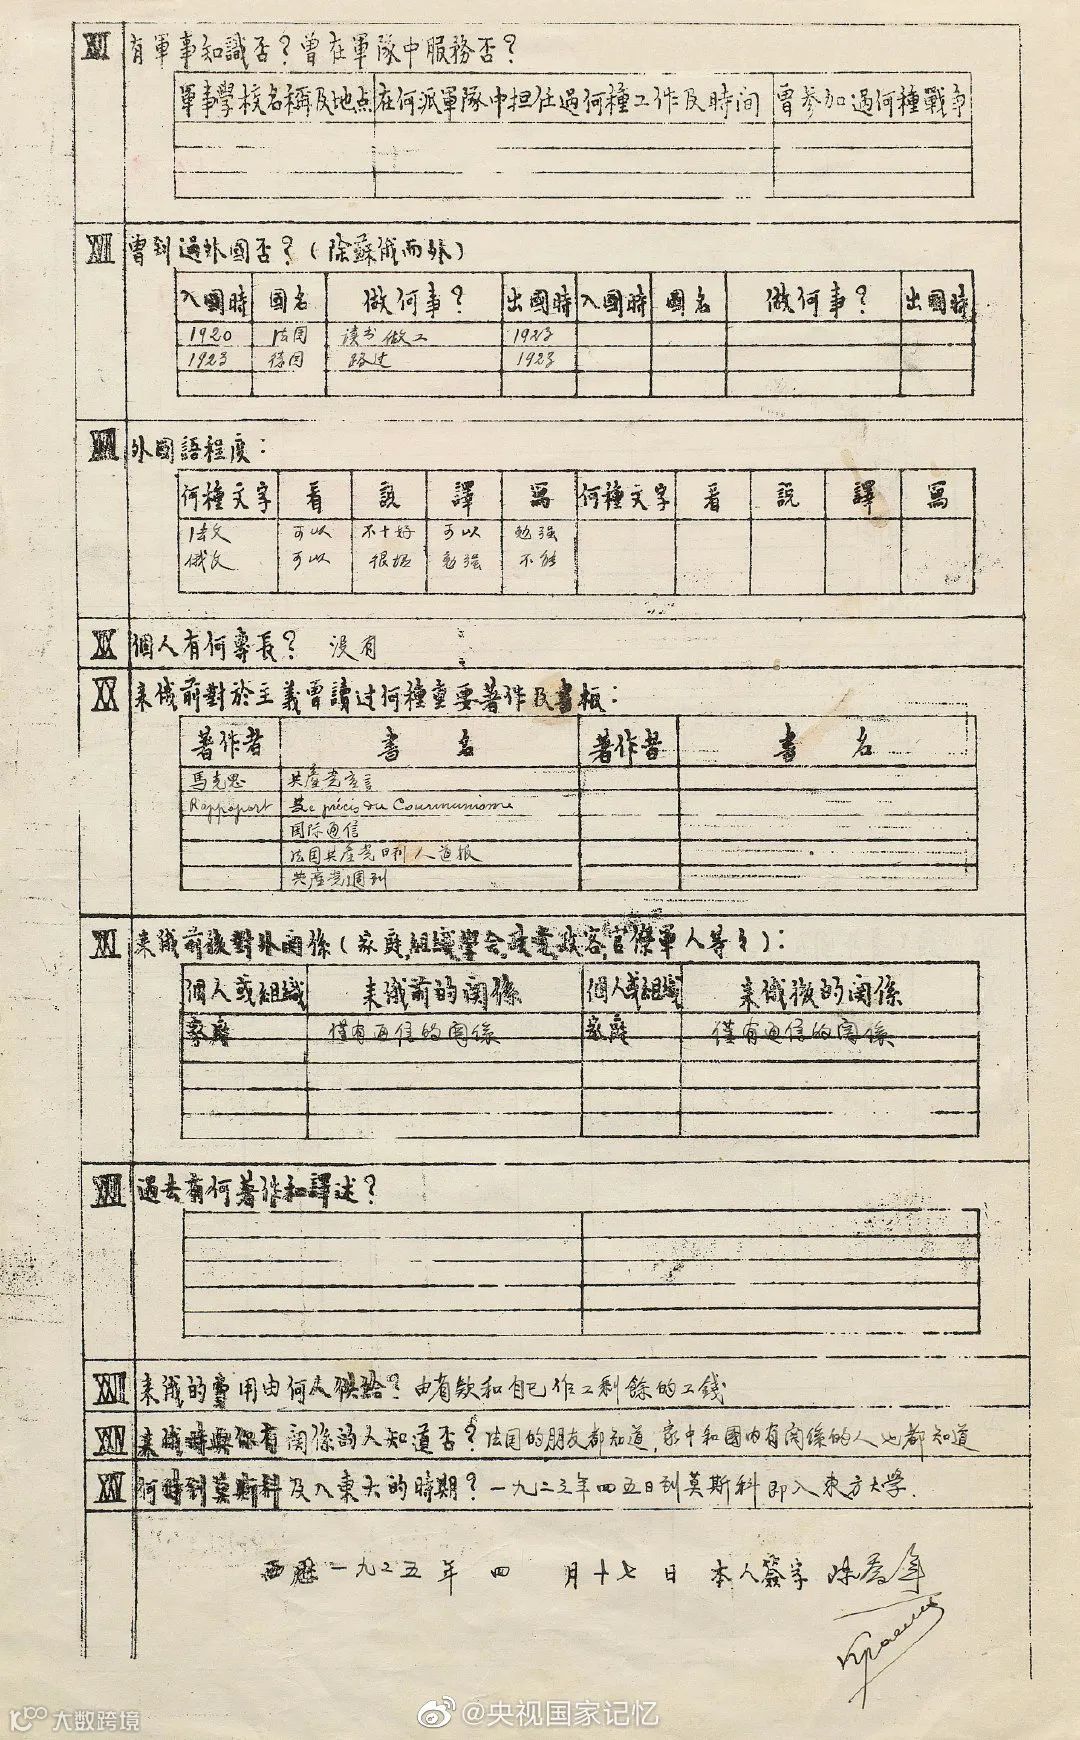 XVI 有軍事知識否？曾在軍隊中服務否？
軍事學校名稱及地点 在何派軍隊中担任過何種工作及時间 曾參加過何種戰爭
XVII 曾到過外國否？（除蘇俄而外）
入國時 國名 做何事？ 出國時 入國時 國名 做何事？ 出國時
1920 法国 读书做工 1923
1923 德国 路过 1923
XVIII 外國語程度：
何種文字 看 說 譯 寫 何種文字 看 説 譯 寫
法文 可以 不十好 可以 勉强
俄文 可以 很坏 勉强 不能
XIX 個人有何專長？ 没有
XX 来俄前對於主義曾讀过何種重要著作及書報：
著作者 書名 著作者 書名
馬克思 共產党宣言
Rappoport précis du Communisme
国际通信
法国共產党日刊人道报
共產党週刊
XXI 来俄前後對外関係（家庭,組織,學会,政党,政客,官僚軍人等々）：
個人或組織 来俄前的関係 個人或組織 来俄後的関係
家庭 僅有通信的関係 家庭 僅有通信的関係
XXII 過去有何著作和譯述？
XXIII 来俄的費用由何人供給？由有欵和自己作工剩餘的工錢
XXIV 来俄時與你有関係的人知道否？法国的朋友都知道,家中和國内有関係的人也都知道
XXV 何時到莫斯科及入東大的時期？一九二三年四五日到莫斯科即入東方大学.
西歷一九二五年 四 月十七日 本人簽字 陈喬年
@央视国家记忆
大数跨境